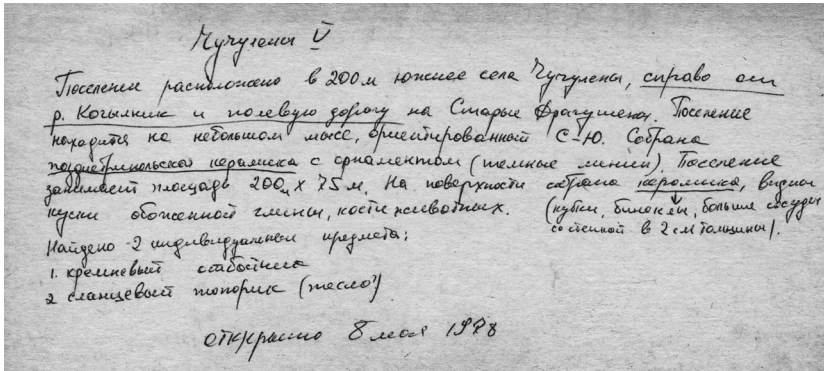 Чучулены V
Поселение расположено в 200 м южнее села Чучулены, справо от
р. Когылник и полевую дорогу на Старые Драгушены. Поселение
находится на небольшом мысе, ориентированный С-Ю. Собрана
позднетрипольская керамика с орнаментом (темные линии). Поселение
занимает площадь 200м х 75 м. На поверхности собрана керамика,
куски обожженной глины, кости животных. (кубки, бинокли, большие сосуды
со стенкой в 2 см толщины).
Найдено 2 индивидуальных предмета:
1. кремневый отбойник
2 сланцевый топорик (тесло?)
открыто 8 мая 1978